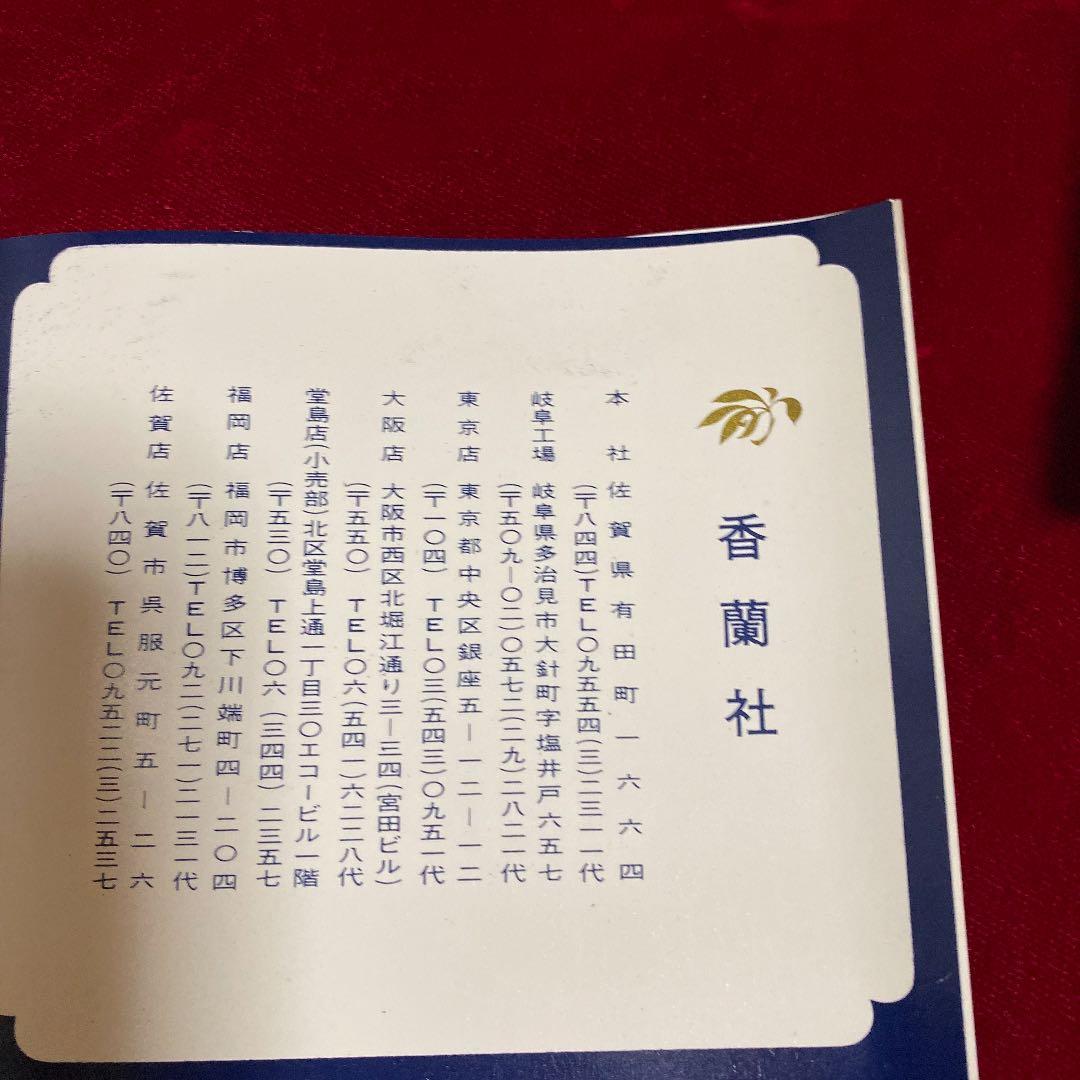 香蘭社
本社 佐賀県有田町一六六四
(〒八四四)TEL〇九五五四(三)二三一一代
岐阜工場 岐阜県多治見市大針町字塩井戸六五七
(〒五〇九ー〇二)〇五七二(二九)二八二一代
東京店 東京都中央区銀座五ー一二ー一二
(〒一〇四) TEL〇三(五四三)〇九五一代
大阪店 大阪市西区北堀江通り三ー三四(宮田ビル)
(〒五五〇) TEL〇六(五四一)六二二八代
堂島店(小売部)北区堂島上通一丁目三〇エコービル一階
(〒五三〇) TEL〇六(三四四)二三五七
福岡店 福岡市博多区下川端町四ー二〇四
(〒八一二)TEL〇九二(二七一)二一三一代
佐賀店 佐賀市呉服元町五ー二六
(〒八四〇) TEL〇九五二二(三)二五三七